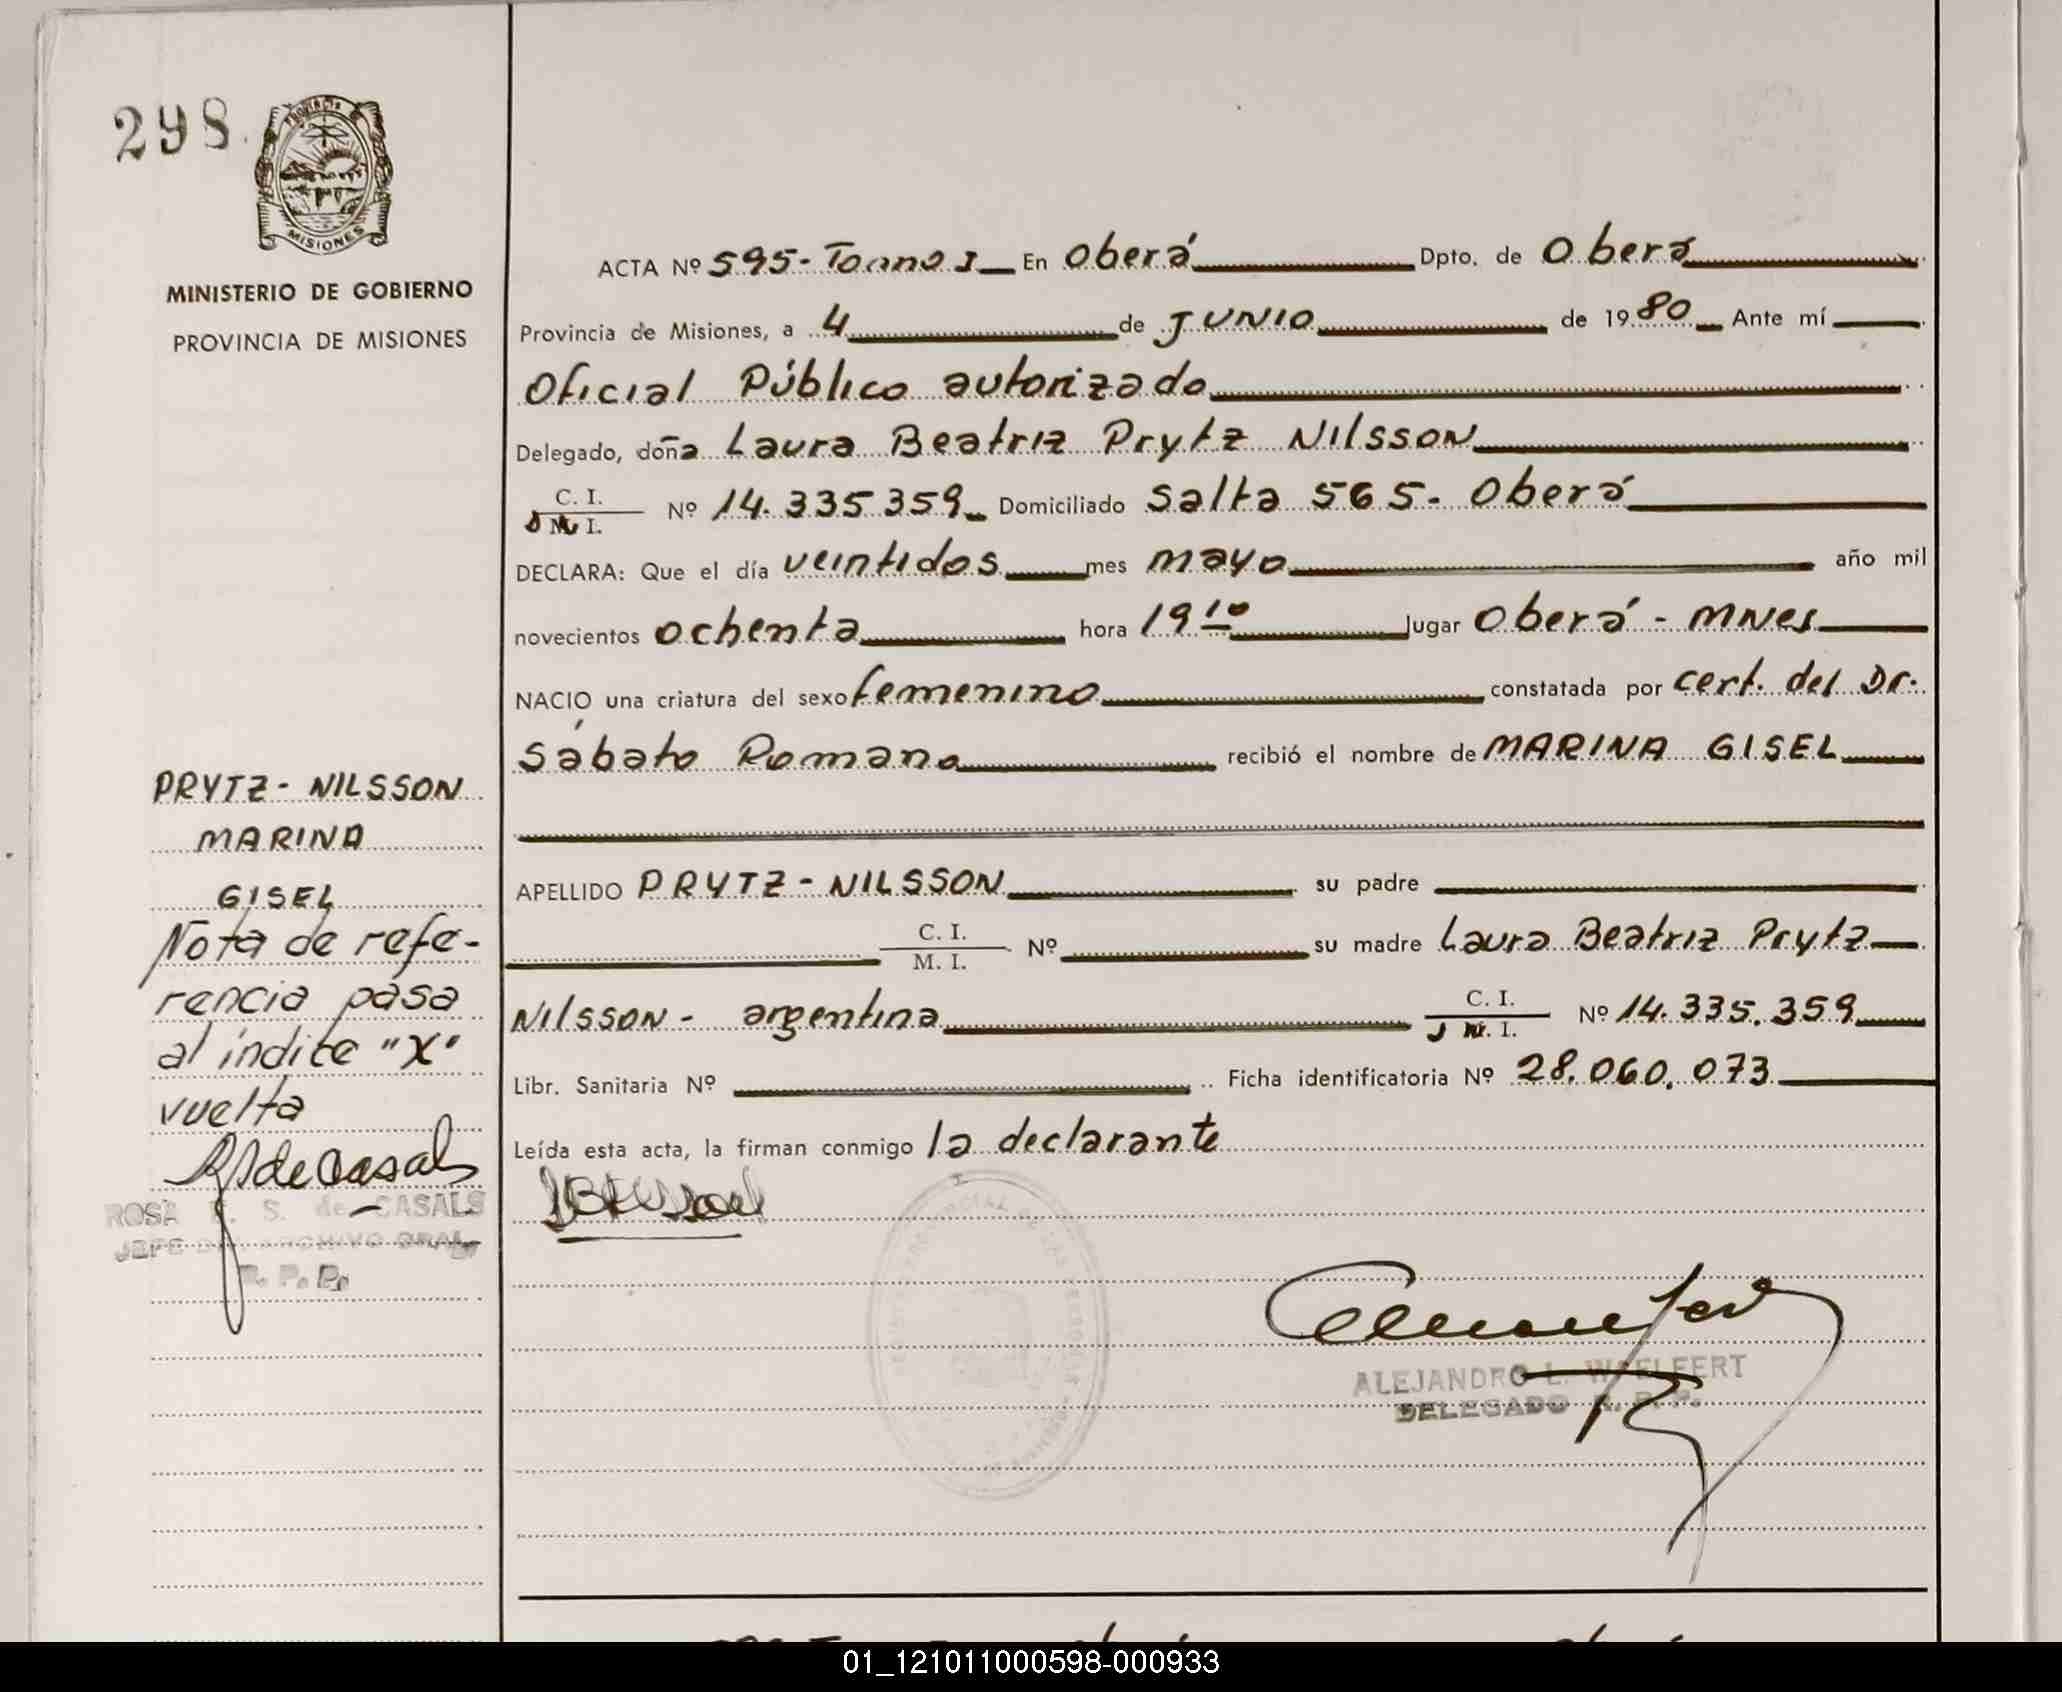 298.
PROVINCIA
MISIONES
MINISTERIO DE GOBIERNO
PROVINCIA DE MISIONES
PRYTZ - NILSSON
MARINA
GISEL
Nota de refe-
rencia pasa
al índice "X"
vuelta
ROSA E. S. de CASALS
JEFE DEL ARCHIVO GRAL.
R. P. P.
ACTA Nº 595 - Tomo I En Oberá Dpto. de Oberá
Provincia de Misiones, a 4 de JUNIO de 1980 Ante mí
Oficial Público autorizado
Delegado, doña Laura Beatriz Prytz Nilsson
C. I.
D M I. Nº 14.335.359 Domiciliado Salta 565 - Oberá
DECLARA: Que el día veintidos mes mayo año mil
novecientos ochenta hora 19 10 lugar Oberá - MNes
NACIO una criatura del sexo femenino constatada por cert. del Dr.
Sábato Romano recibió el nombre de MARINA GISEL
APELLIDO PRYTZ - NILSSON su padre
C. I.
M. I. Nº su madre Laura Beatriz Prytz
Nilsson - argentina C. I.
M. I. Nº 14.335.359
Libr. Sanitaria Nº Ficha identificatoria Nº 28.060.073
Leída esta acta, la firman conmigo la declarante
ALEJANDRO L. WAELFERT
DELEGADO R. P. P.
01_121011000598-000933